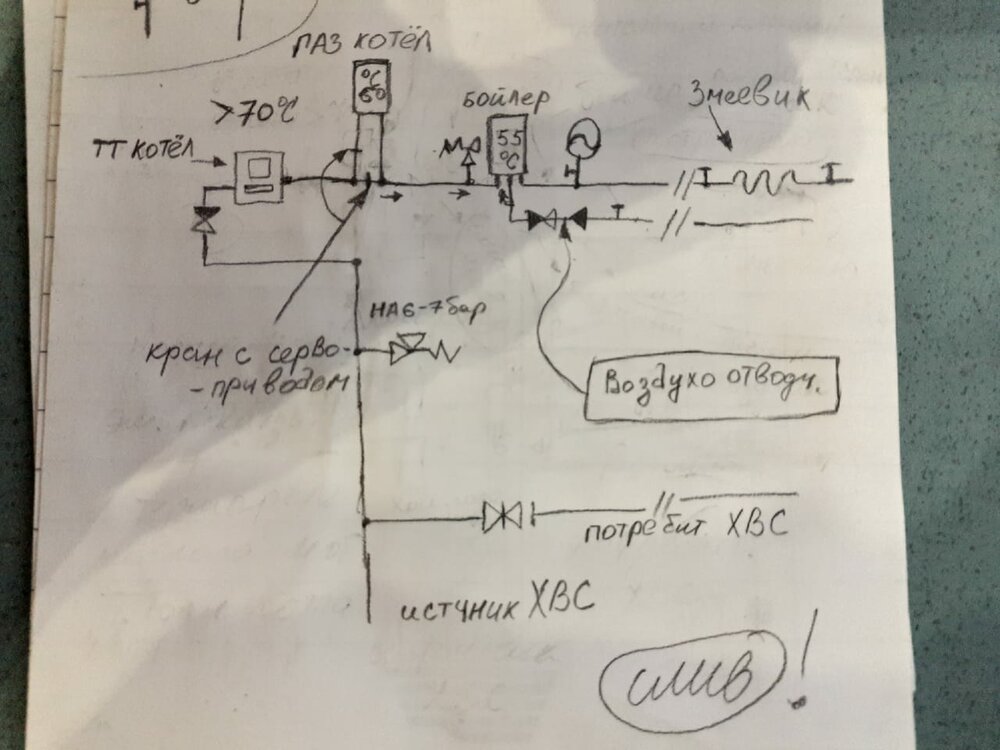 ПАЗ КОТЁЛ
°C
60
>70°C
ТТ КОТЁЛ
БОЙЛЕР
55
°C
Змеевик
НА 6-7 бар
кран с серво-
-приводом
Воздухоотводч.
потребит ХВС
истчник ХВС
слив!